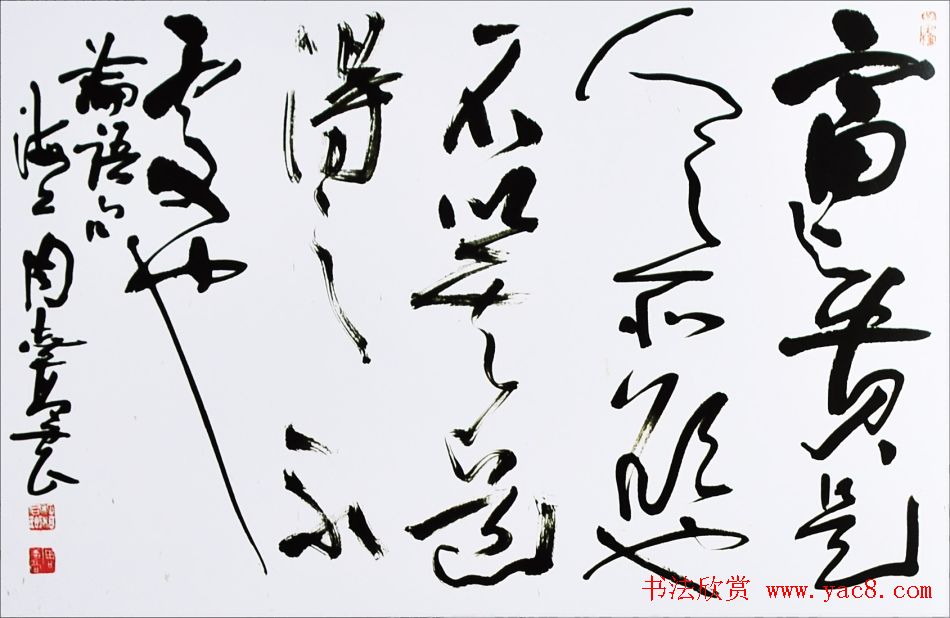 富与貴是
人之所欲也
不以其道
得之不
處也
論語句
海上周
书法欣赏 www.yac8.com